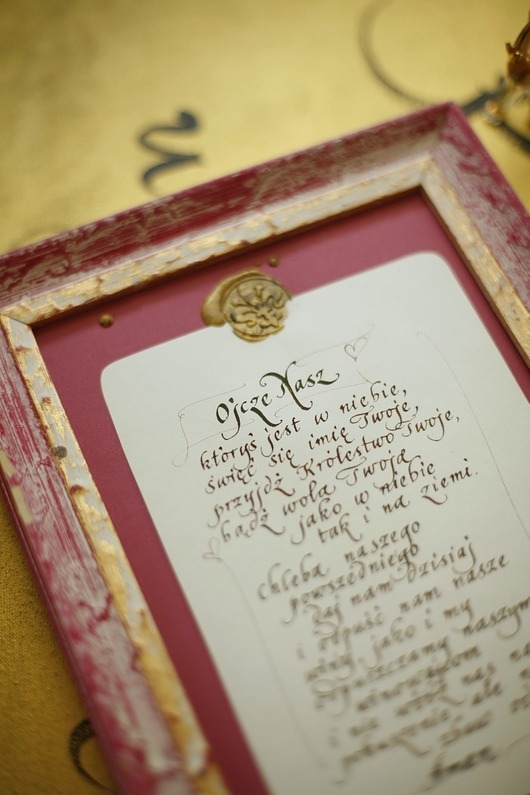 n
Ojcze Nasz
któryś jest w niebie,
święć się imię Twoje,
przyjdź Królestwo Twoje,
bądź wola Twoja
jako w niebie
tak i na ziemi.
chleba naszego
powszedniego
daj nam dzisiaj
i odpuść nam nasze
winy, jako i my
odpuszczamy naszym
winowajcom
i nie wódź nas na
pokuszenie, ale
zbaw
Amen